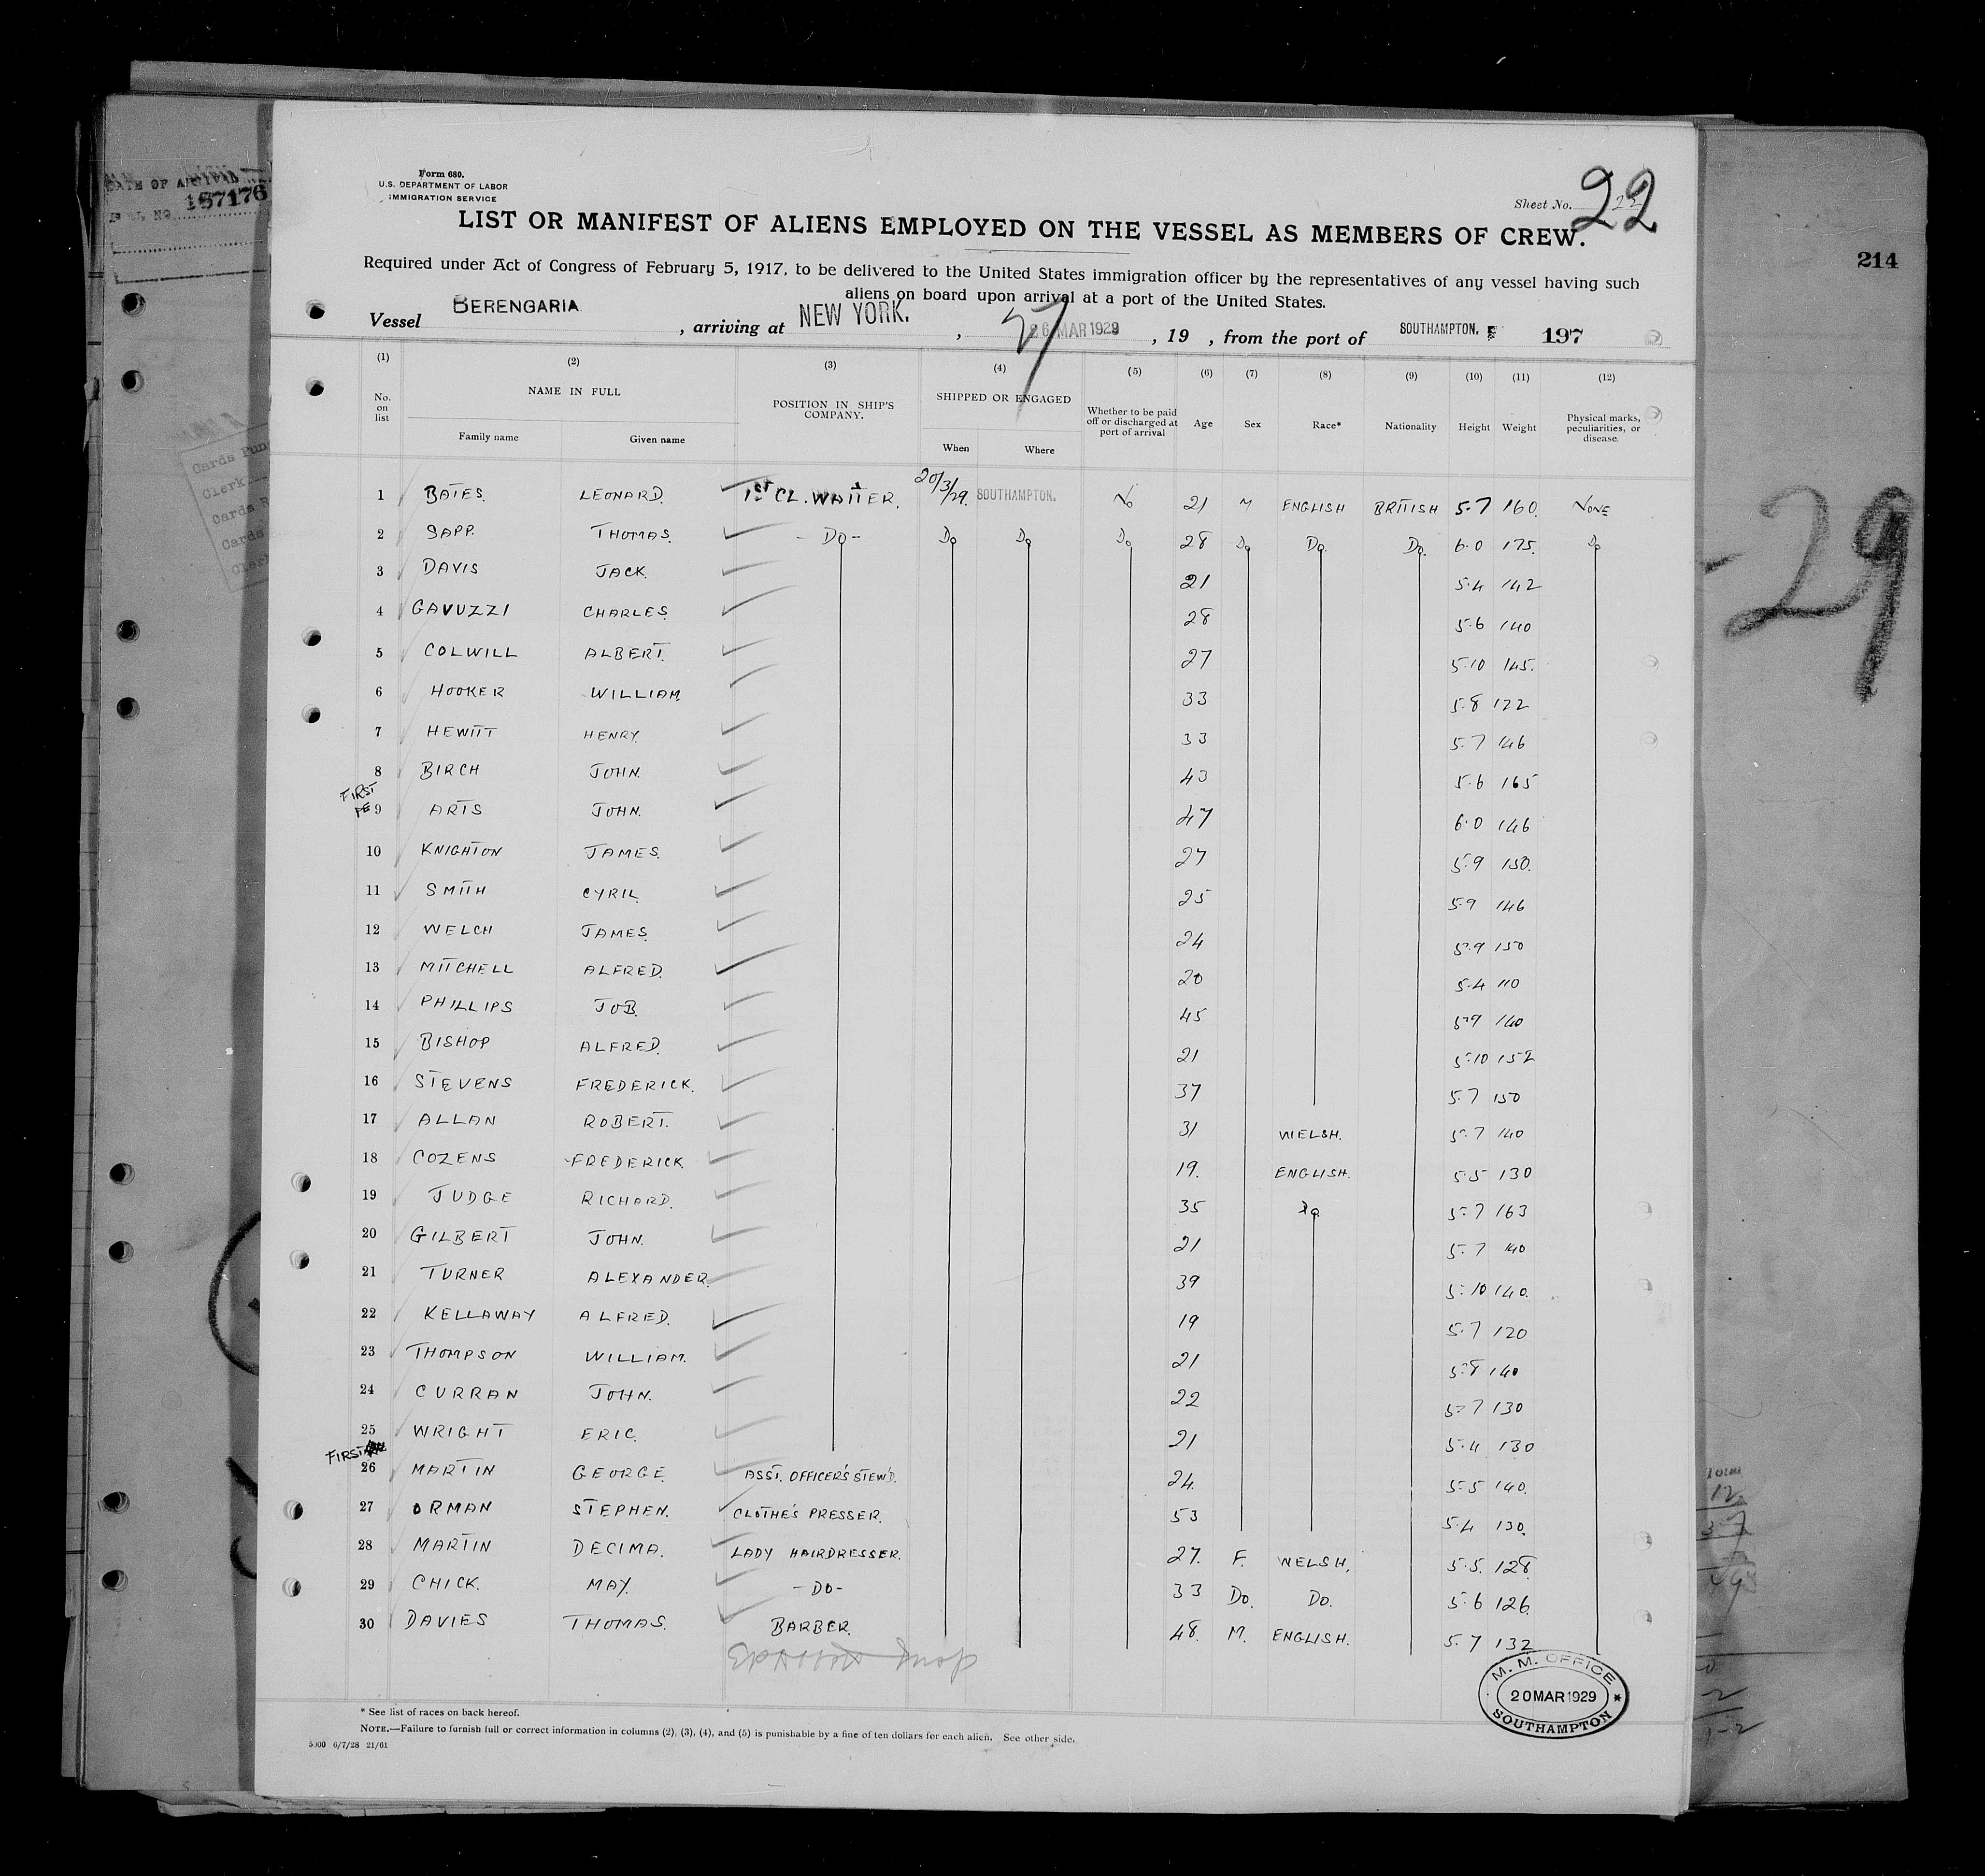 DATE OF ARRIVAL
187176
214
Form 680.
U.S. DEPARTMENT OF LABOR
IMMIGRATION SERVICE
Sheet No. 22
LIST OR MANIFEST OF ALIENS EMPLOYED ON THE VESSEL AS MEMBERS OF CREW.
Required under Act of Congress of February 5, 1917, to be delivered to the United States immigration officer by the representatives of any vessel having such
aliens on board upon arrival at a port of the United States.
Vessel BERENGARIA, arriving at NEW YORK., 26 MAR 1929, 19 , from the port of SOUTHAMPTON. 197
27
(1) (2) (3) (4) (5) (6) (7) (8) (9) (10) (11) (12)
No. on list NAME IN FULL POSITION IN SHIP'S COMPANY. SHIPPED OR ENGAGED Whether to be paid off or discharged at port of arrival Age Sex Race* Nationality Height Weight Physical marks, peculiarities, or disease.
Family name Given name When Where
1 BATES. LEONARD. 1ST CL. WAITER. 20/3/29. SOUTHAMPTON. No 21 M ENGLISH BRITISH 5-7 160. NONE
2 SAPP. THOMAS. - DO - Do Do Do 28 Do Do. Do. 6.0 175. Do
3 DAVIS JACK. 21 5.4 142
4 GAVUZZI CHARLES. 28 5.6 140
5 COLWILL ALBERT. 27 5.10 145.
6 HOOKER WILLIAM. 33 5.8 122
7 HEWITT HENRY. 33 5.7 146
8 BIRCH JOHN. 43 5.6 165
FIRST
9 ARTS JOHN. 47 6.0 146
10 KNIGHTON JAMES. 27 5.9 150.
11 SMITH CYRIL. 25 5.9 146
12 WELCH JAMES. 24 5.9 150
13 MITCHELL ALFRED. 20 5.4 110
14 PHILLIPS JOB. 45 5.9 140
15 BISHOP ALFRED. 21 5.10 152
16 STEVENS FREDERICK. 37 5.7 150
17 ALLAN ROBERT. 31 WELSH. 5.7 140
18 COZENS FREDERICK 19. ENGLISH. 5.5 130
19 JUDGE RICHARD. 35 Do 5.7 163
20 GILBERT JOHN. 21 5.7 140
21 TURNER ALEXANDER. 39 5.10 140.
22 KELLAWAY ALFRED. 19 5.7 120
23 THOMPSON WILLIAM. 21 5.8 140
24 CURRAN JOHN. 22 5.7 130
25 WRIGHT ERIC. 21 5.4 130
FIRST
26 MARTIN GEORGE. ASST. OFFICER'S STEW'D. 24. 5.5 140.
27 ORMAN STEPHEN. CLOTHE'S PRESSER. 53 5.4 130.
28 MARTIN DECIMA. LADY HAIRDRESSER. 27. F. WELSH, 5.5. 128.
29 CHICK. MAY. - DO - 33 Do. Do. 5.6 126.
30 DAVIES THOMAS. BARBER. 48. M. ENGLISH. 5.7 132
* See list of races on back hereof.
NOTE.—Failure to furnish full or correct information in columns (2), (3), (4), and (5) is punishable by a fine of ten dollars for each alien. See other side.
5000 6/7/28 21/61
M. M. OFFICE
20 MAR 1929
SOUTHAMPTON
-29